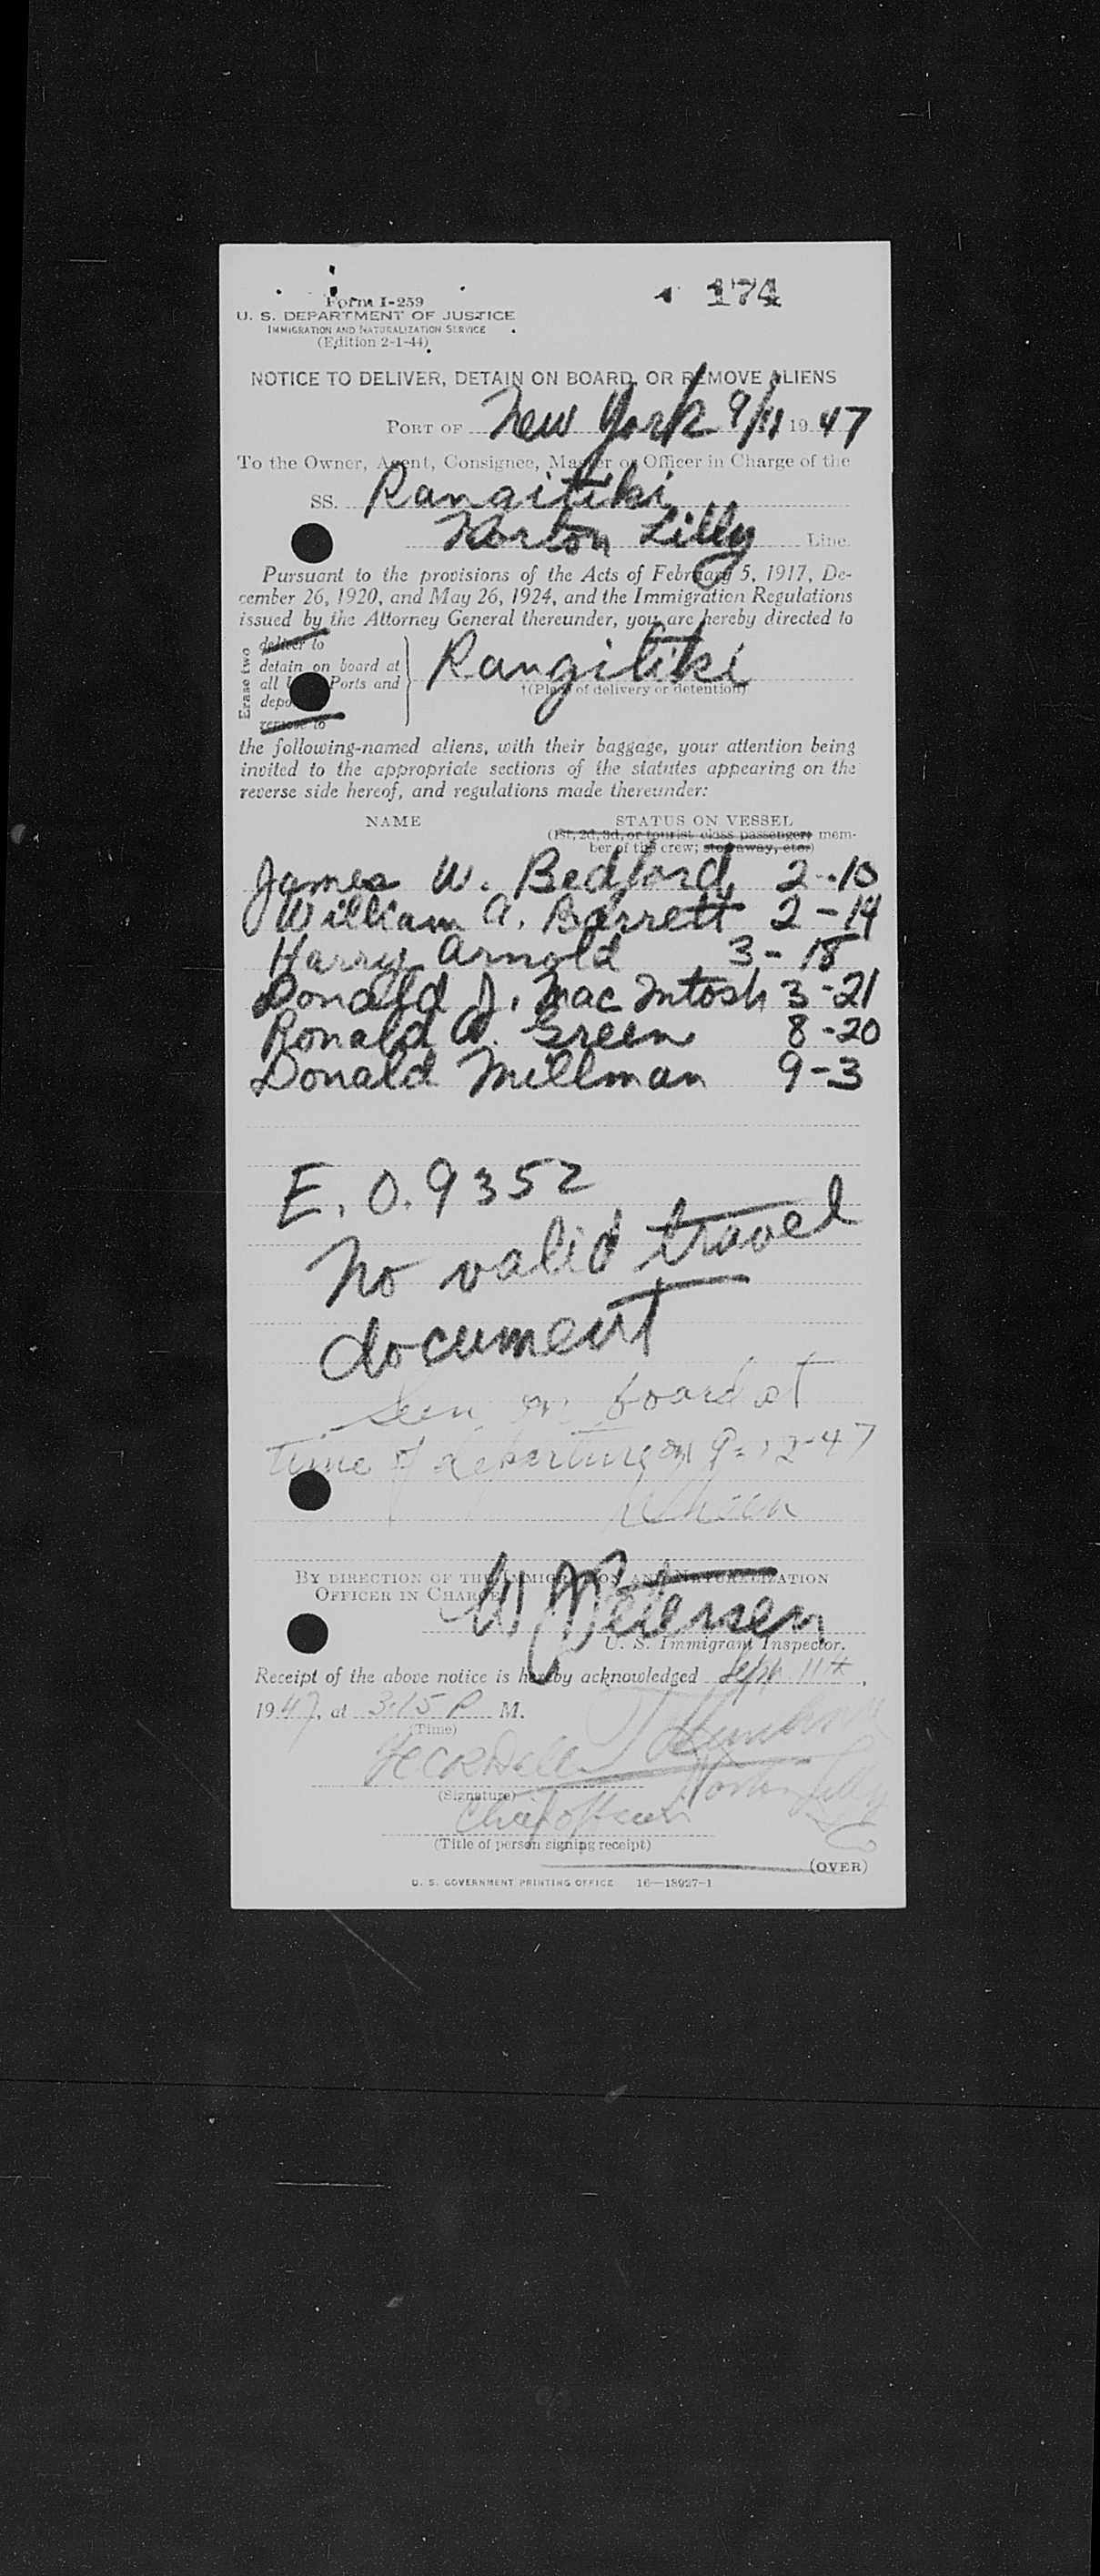 174
Form I-259
U. S. DEPARTMENT OF JUSTICE
IMMIGRATION AND NATURALIZATION SERVICE
(Edition 2-1-44)
NOTICE TO DELIVER, DETAIN ON BOARD, OR REMOVE ALIENS
PORT OF New York 9/11 1947
To the Owner, Agent, Consignee, Master or Officer in Charge of the
SS. Rangitiki
Norton Lilly Line.
Pursuant to the provisions of the Acts of February 5, 1917, De-
cember 26, 1920, and May 26, 1924, and the Immigration Regulations
issued by the Attorney General thereunder, you are hereby directed to
Erase two
deliver to
detain on board at
all Ports and
remove to
Rangitiki
†(Place of delivery or detention)
the following-named aliens, with their baggage, your attention being
invited to the appropriate sections of the statutes appearing on the
reverse side hereof, and regulations made thereunder:
NAME STATUS ON VESSEL
(1st, 2d, 3d, or tourist class passenger; mem-
ber of the crew; stowaway, etc.)
James W. Bedford 2-10
William A. Barrett 2-14
Harry Arnold 3-18
Donald J. Mac Intosh 3-21
Ronald W. Green 8-20
Donald Millman 9-3
E. O. 9352
No valid travel
document
Seen on board at
time of departure on 9-12-47
BY DIRECTION OF THE IMMIGRATION AND NATURALIZATION
OFFICER IN CHARGE
W Petersen
U. S. Immigrant Inspector.
Receipt of the above notice is hereby acknowledged Sept. 11th,
1947, at 3:15 P M.
(Time)
Norton Lilly
(Signature)
Chief officer
Co
(Title of person signing receipt)
(OVER)
U. S. GOVERNMENT PRINTING OFFICE 16—18927-1